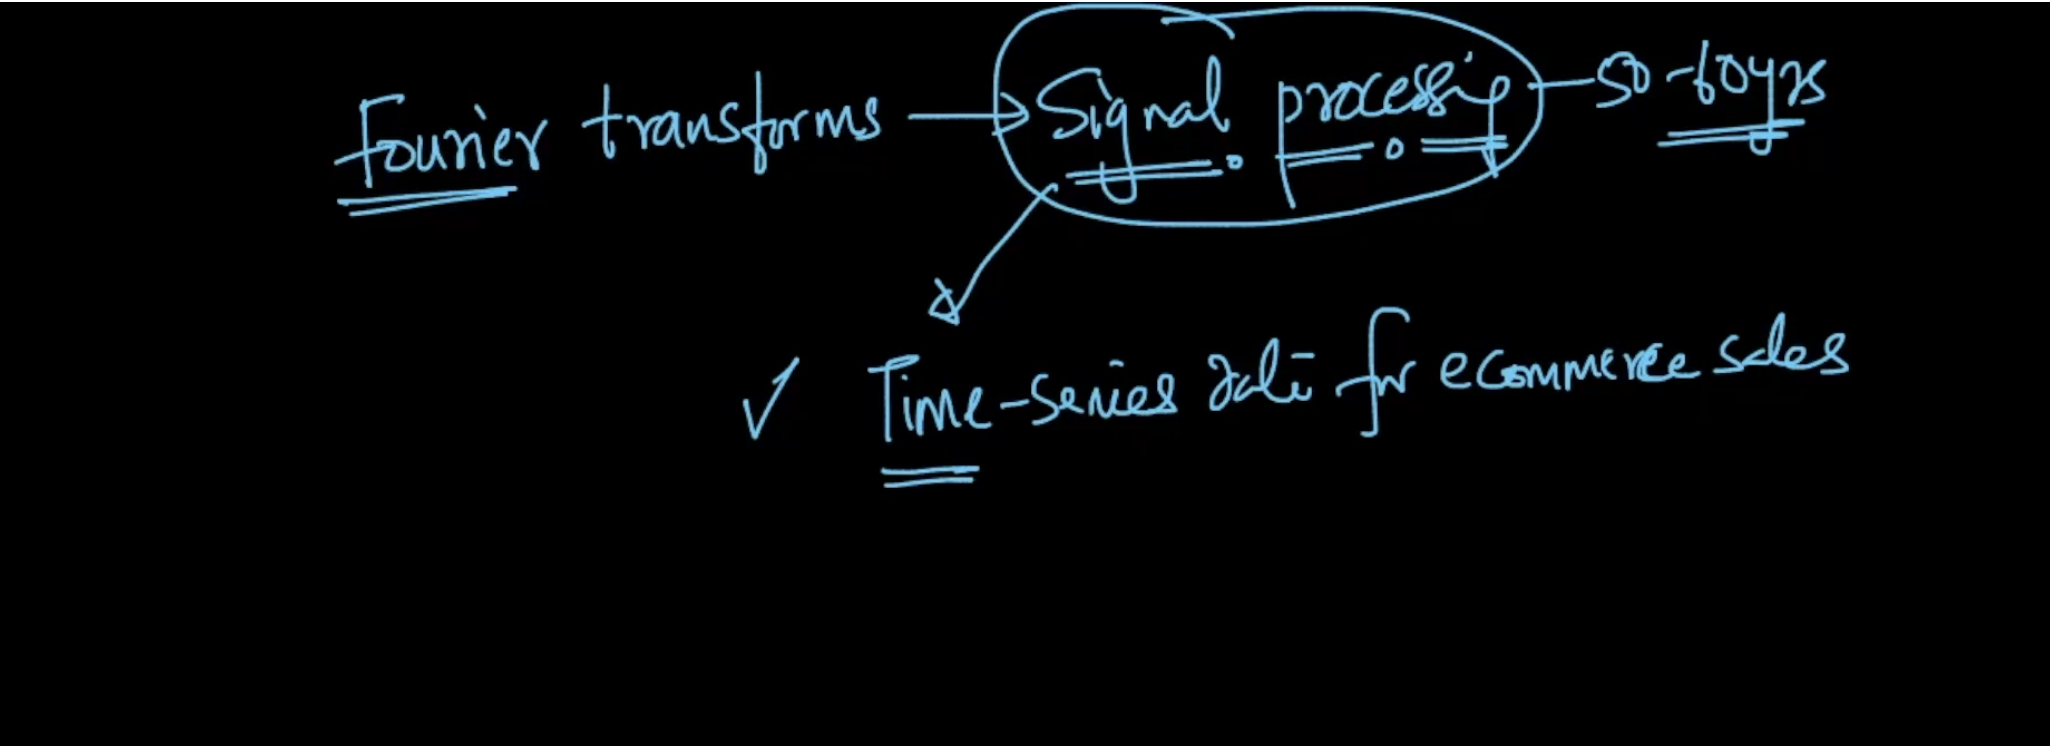 Fourier transforms → Signal processing - 50-60yrs
✓ Time-series data for ecommerce sales